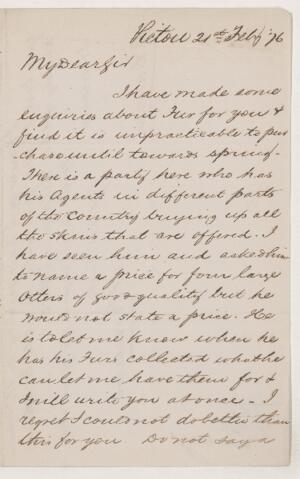 Pictou 21st Feby '76
My Dear Sir
I have made some
enquiries about Fur for you &
find it is unpracticable to pur
-chase until towards spring -
There is a party here who has
his Agents in different parts
of the Country buying up all
the skins that are offered. I
have seen him and asked him
to name a price for four large
Otters of good quality but he
would not state a price. He
is to let me know when he
has his Furs collected what he
can let me have them for &
I will write you at once - I
regret I could not do better than
this for you Do not say a